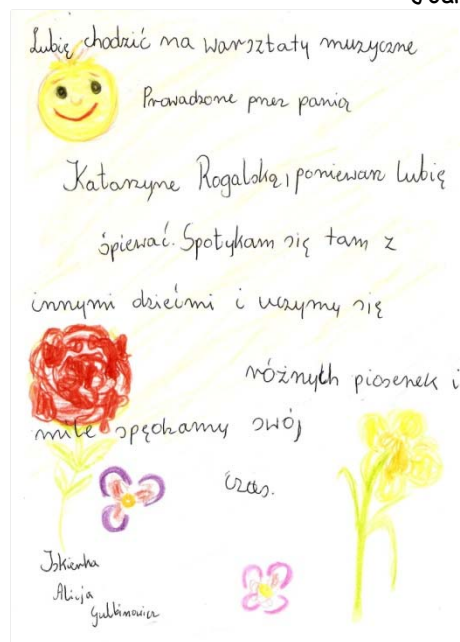 Lubię chodzić na warsztaty muzyczne
Prowadzone przez panią
Katarzynę Rogalską, ponieważ lubię
śpiewać. Spotykam się tam z
innymi dziećmi i uczymy się
różnych piosenek i
miłe spędzamy swój
czas.
Iskierka
Alicja